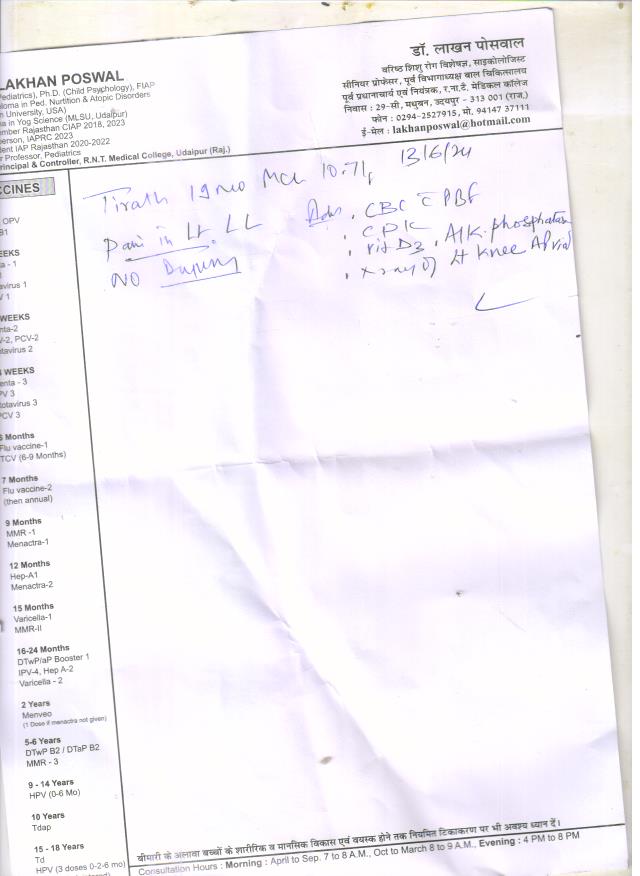 LAKHAN POSWAL
Pediatrics), Ph.D. (Child Psychology), FIAP
loma in Ped. Nurtition & Atopic Disorders
n University, USA)
a in Yog Science (MLSU, Udaipur)
mber Rajasthan CIAP 2018, 2023
erson, IAPRC 2023
dent IAP Rajasthan 2020-2022
r Professor, Pediatrics
rincipal & Controller, R.N.T. Medical College, Udaipur (Raj.)
डॉ. लाखन पोसवाल
वरिष्ठ शिशु रोग विशेषज्ञ, साइकोलोजिस्ट
सीनियर प्रोफेसर, पूर्व विभागाध्यक्ष बाल चिकित्सालय
पूर्व प्रधानाचार्य एवं नियंत्रक, र.ना.टै. मेडिकल कॉलेज
निवास : 29-सी, मधुबन, उदयपुर - 313 001 (राज.)
फोन : 0294-2527915, मो. 94147 37111
ई-मेल : lakhanposwal@hotmail.com
13/6/24
Tirath 19 mo MCh 10.71
Pain in Lt. LL
NO
Adv. CBC PBF
CPK
Vit D3, Alk. phosphatase
X ray Lt Knee AP
CCINES
OPV
B1
EEKS
a - 1
avirus 1
V 1
WEEKS
nta-2
V-2, PCV-2
tavirus 2
WEEKS
enta - 3
PV 3
otavirus 3
PCV 3
6 Months
Flu vaccine-1
TCV (6-9 Months)
7 Months
Flu vaccine-2
(then annual)
9 Months
MMR -1
Menactra-1
12 Months
Hep-A1
Menactra-2
15 Months
Varicella-1
MMR-II
16-24 Months
DTwP/aP Booster 1
IPV-4, Hep A-2
Varicella - 2
2 Years
Menveo
(1 Dose if menactra not given)
5-6 Years
DTwP B2 / DTaP B2
MMR - 3
9 - 14 Years
HPV (0-6 Mo)
10 Years
Tdap
15 - 18 Years
Td
HPV (3 doses 0-2-6 mo)
बीमारी के अलावा बच्चों के शारीरिक व मानसिक विकास एवं वयस्क होने तक नियमित टिकाकरण पर भी अवश्य ध्यान दें।
Consultation Hours : Morning : April to Sep. 7 to 8 A.M., Oct to March 8 to 9 A.M., Evening : 4 PM to 8 PM